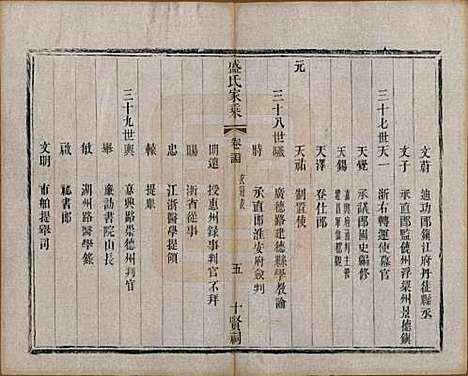 文蔚 迪功郎鎮江府丹徒縣丞
文子 承直郎監饒州浮梁州景德鎮
三十七世天一 浙右轉運使幕官
天覺 承議郎國史編修
天錫
天澤 登仕郎
天祐 制置使
元
三十八世 廣德路建德縣學教諭
時 承直郎淮安府僉判
盛氏家乘 卷
五 十賢祠
明遠 授惠州錄事判官不拜
賜 浙省從事
忠 江浙醫學提舉
轅 提舉
三十九世輿 嘉興路崇德州判官
舉 廉訪書院山長
敏 湖州路醫學錄
啟 祕書郎
文明 市舶提舉司